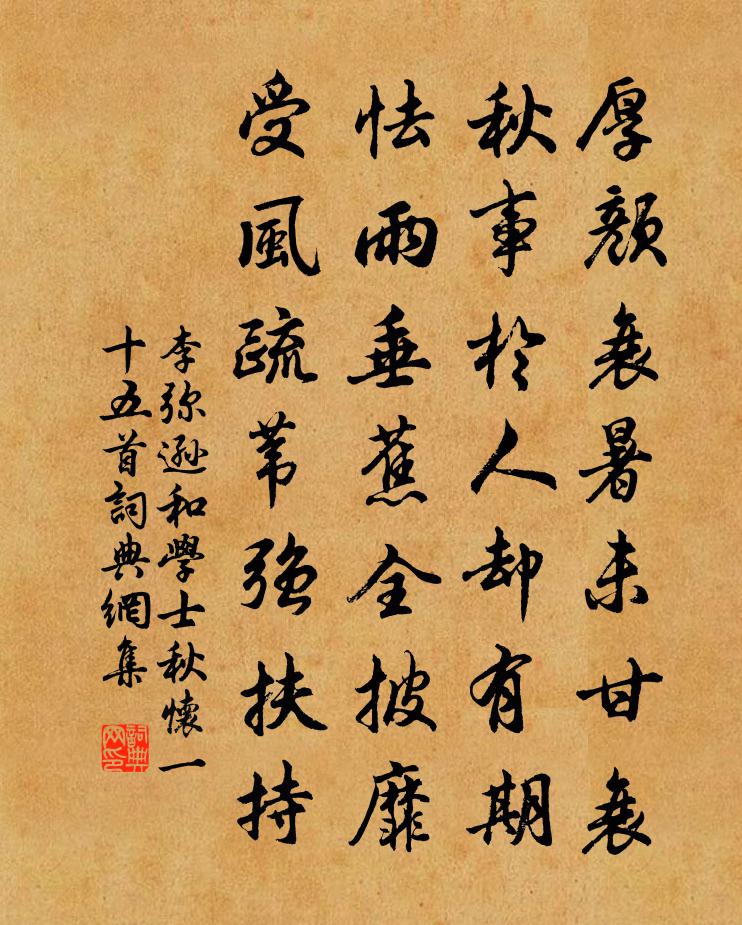 厚顏衰暑未甘衰
秋事於人却有期
怯雨垂蕉全披靡
受風疏葦強扶持
李弥遜和學士秋懷一
十五首詞典網集
詞典网印